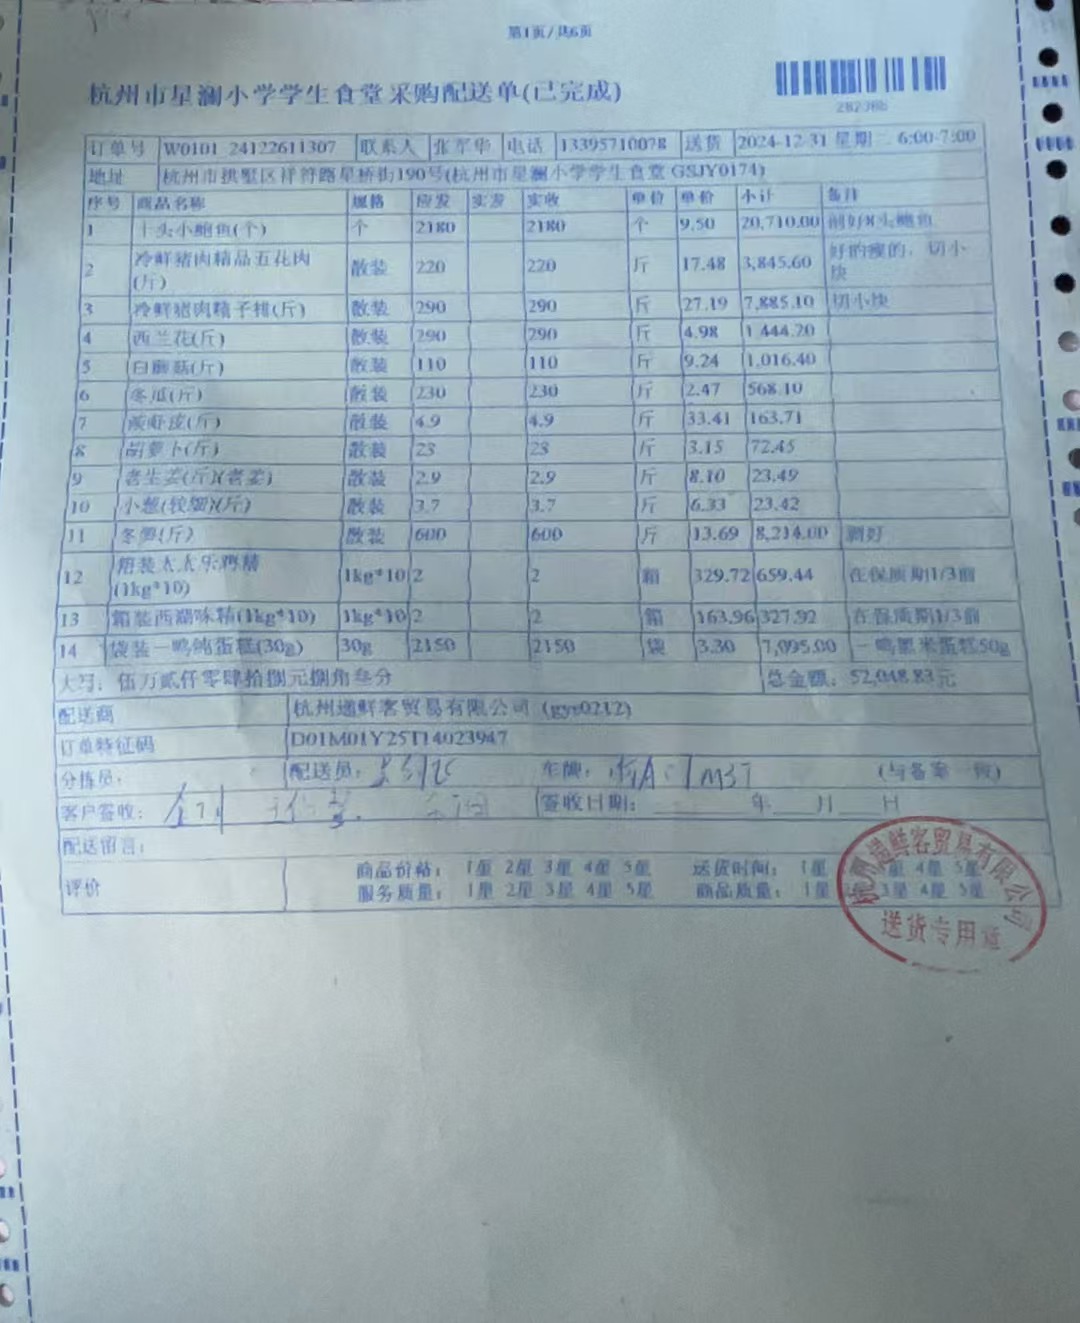 第1页/共6页
杭州市星澜小学学生食堂采购配送单(已完成)
订单号 W0101_24122611307 联系人 张军华 电话 13395710078 送货 2024-12-31 星期二 6:00-7:00
地址 杭州市拱墅区祥符路星桥街190号(杭州市星澜小学学生食堂 GSJY0174)
序号 商品名称 规格 应发 实发 实收 单位 单价 小计 备注
1 十头小鲍鱼(个) 个 2180 2180 个 9.50 20,710.00 剖好8头鲍鱼
2 冷鲜猪肉精品五花肉(斤) 散装 220 220 斤 17.48 3,845.60 好的瘦的，切小块
3 冷鲜猪肉精子排(斤) 散装 290 290 斤 27.19 7,885.10 切小块
4 西兰花(斤) 散装 290 290 斤 4.98 1,444.20
5 白蘑菇(斤) 散装 110 110 斤 9.24 1,016.40
6 冬瓜(斤) 散装 230 230 斤 2.47 568.10
7 (斤) 散装 4.9 4.9 斤 33.41 163.71
8 胡萝卜(斤) 散装 23 23 斤 3.15 72.45
9 老生姜(斤)(老姜) 散装 2.9 2.9 斤 8.10 23.49
10 小葱(较细)(斤) 散装 3.7 3.7 斤 6.33 23.42
11 冬笋(斤) 散装 600 600 斤 13.69 8,214.00 剥好
12 箱装太太乐鸡精(1kg*10) 1kg*10 2 2 箱 329.72 659.44 在保质期1/3前
13 箱装西湖味精(1kg*10) 1kg*10 2 2 箱 163.96 327.92 在保质期1/3前
14 袋装一鸣纯蛋糕(30g) 30g 2150 2150 袋 3.30 7,095.00 一鸣黑米蛋糕50g
大写：伍万贰仟零肆拾捌元捌角叁分 总金额：52,048.83元
配送商 杭州通鲜客贸易有限公司 (gys0212)
订单特征码 D01M01Y25T14023947
分拣员： 配送员： 车牌： (与备案一致)
客户签收： 签收日期： 年 月 日
配送留言：
评价 商品价格： 1星 2星 3星 4星 5星 送货时间： 1星 星 4星 5星
服务质量： 1星 2星 3星 4星 5星 商品质量： 1星 3星 4星 5星
杭州通鲜客贸易有限公司
送货专用章